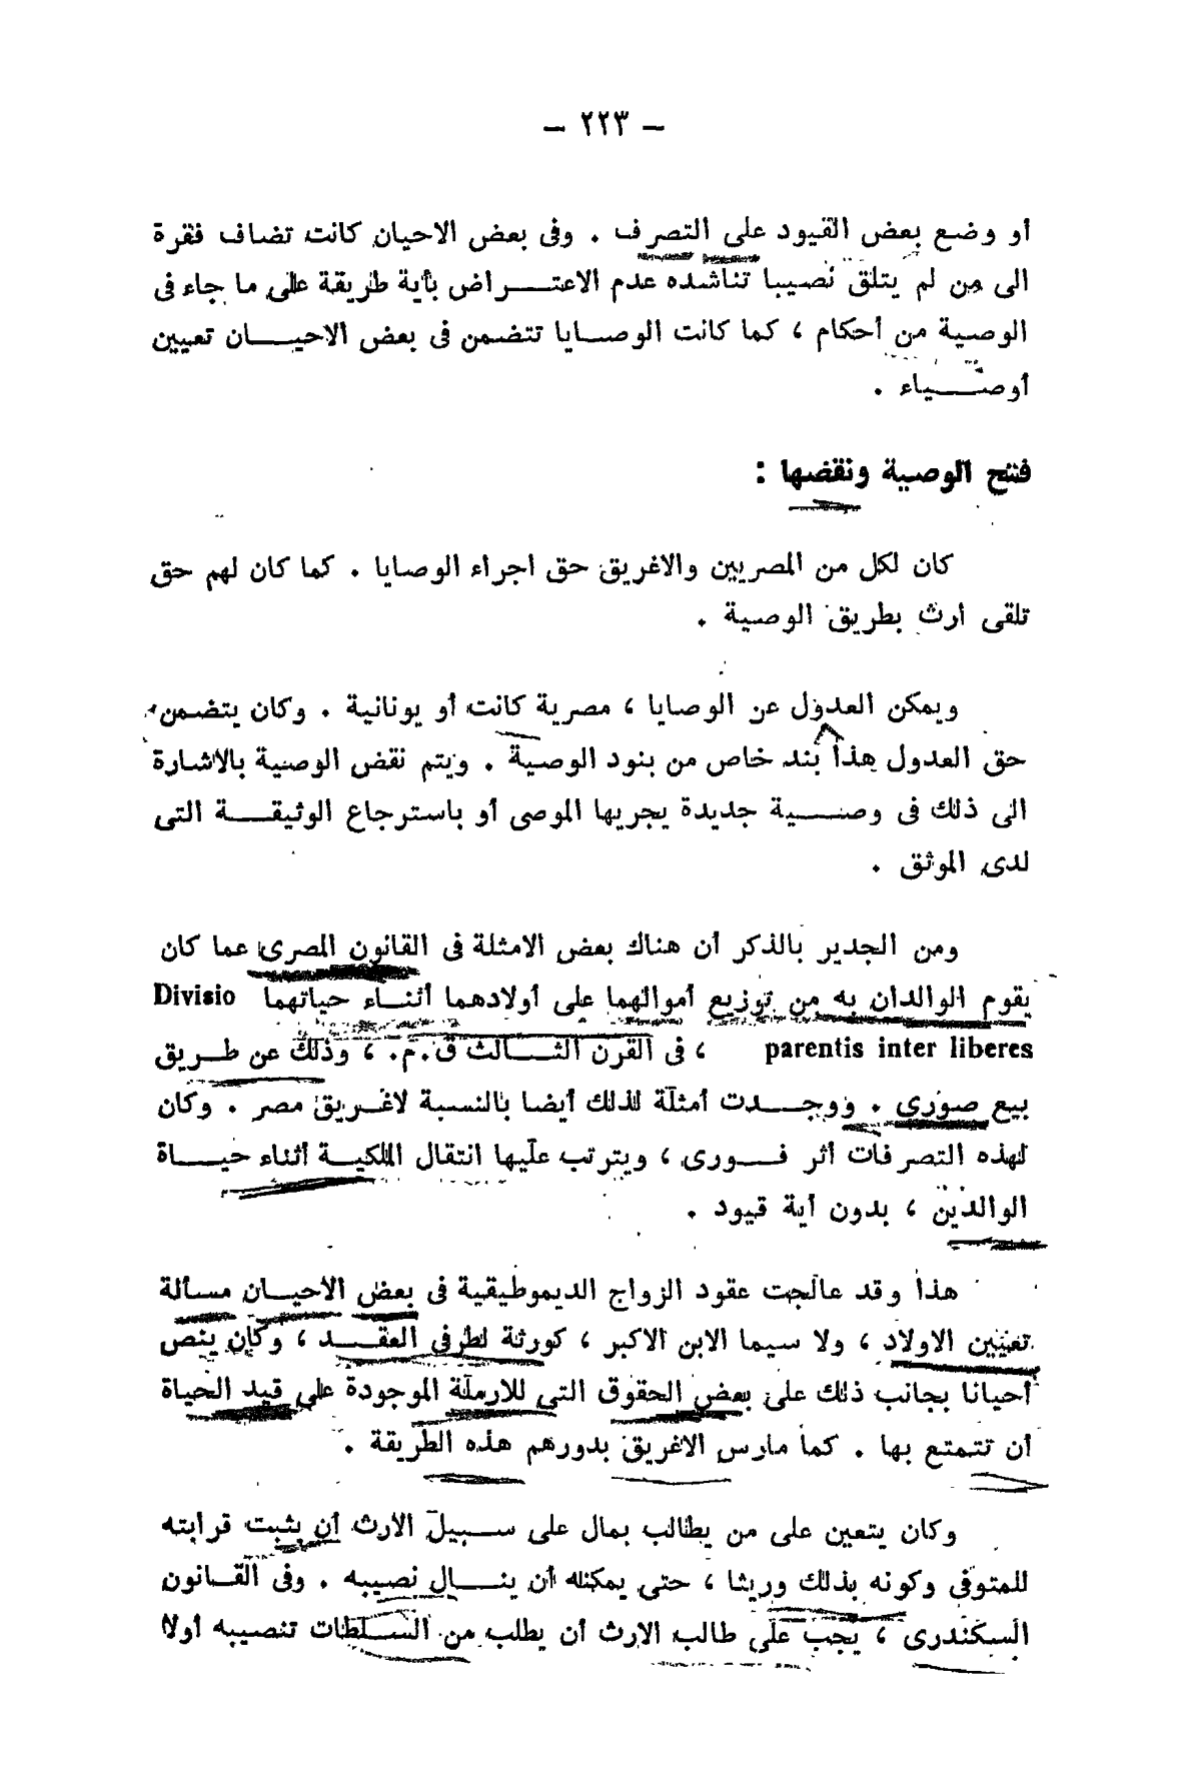 — ٢٢٣ —
أو وضع بعض القيود على التصرف . وفى بعض الاحيان كانت تضاف فقرة
الى من لم يتلق نصيبا تناشده عدم الاعتـــراض بأية طريقة على ما جاء فى
الوصية من أحكام ، كما كانت الوصـايا تتضمن فى بعض الاحيـــان تعيين
أوصـــياء .
فتح الوصية ونقضها :
كان لكل من المصريين والاغريق حق اجراء الوصايا . كما كان لهم حق
تلقى ارث بطريق الوصية .
ويمكن العدول عن الوصايا ، مصرية كانت أو يونانية . وكان يتضمن
حق العدول هذا بند خاص من بنود الوصية . ويتم نقض الوصية بالاشارة
الى ذلك فى وصـــية جديدة يجريها الموصى أو باسترجاع الوثيقـــة التى
لدى الموثق .
ومن الجدير بالذكر أن هناك بعض الامثلة فى القانون المصرى عما كان
يقوم الوالدان به من توزيع أموالهما على أولادهما أثنـاء حياتهما Divisio
parentis inter liberes ، فى القرن الثـــالث ق.م. ، وذلك عن طـريق
بيع صورى . ووجـــدت أمثلة لذلك أيضا بالنسبة لاغـريق مصر . وكان
لهذه التصرفات أثر فـــورى ، ويترتب عليها انتقال الملكيـــة أثناء حيـــاة
الوالدين ، بدون أية قيود .
هذا وقد عالجت عقود الزواج الديموطيقية فى بعض الاحيـــان مسألة
تعيين الاولاد ، ولا سيما الابن الاكبر ، كورثة لطرفى العقـــد ، وكان ينص
أحيانا بجانب ذلك على بعض الحقوق التى للارملة الموجودة على قيد الحياة
أن تتمتع بها . كما مارس الاغريق بدورهم هذه الطريقة .
وكان يتعين على من يطالب بمال على سـبيل الارث أن يثبت قرابته
للمتوفى وكونه بذلك وريثا ، حتى يمكنه أن ينـــال نصيبه . وفى القـانون
السكندرى ، يجب على طالب الارث أن يطلب من السـلطات تنصيبه أولا